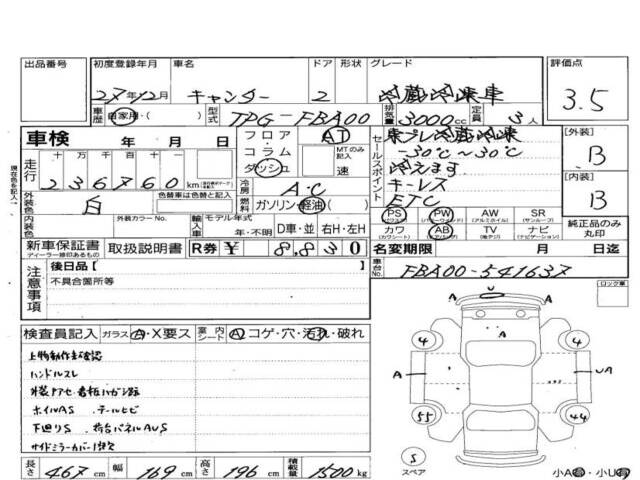 出品番号 初度登録年月 車名 ドア 形状 グレード 評価点
27年12月 キャンター 2 冷蔵冷凍車 3.5
車歴 自家用・( ) 型式 TPG-FBA00 排気量 3000cc 定員 3人
車検 年 月 日
フロア・コラム・ダッシュ AT MTのみ記入 速
セールスポイント
東プレ冷蔵冷凍
-30℃~30℃
冷えます
キーレス
ETC
【外装】 B
【内装】 B
走行 十万 万 千 百 十 一
236760km
冷房 AC
燃料 ガソリン・軽油( )
現在色を記入
外装色 白 色替車は色替と記入
内装色 外装カラーNo. 輸入車 モデル年式 年・不明 D車・並 右H・左H
PS PW AW SR
パワーウィンド アルミホイル サンルーフ
カワ AB TV ナビ
純正品のみ丸印
新車保証書 取扱説明書 R券 ¥ 8,830
ディーラー捺印あるもの
名変期限 月 日迄
車台No. FBA00-541637
注意事項
後日品【 】
不具合箇所等
ロック車
検査員記入 ガラス A・X要ス 室内シート A・コゲ・穴・汚れ・破れ
上物動作未確認
ハンドルスレ
外装アセ・看板ハガシ跡
ホイルAS .テールヒビ
下廻りS .荷台パネルAUS
サイドミラーカバー1損欠
A U
A
4 4
A A UA
55 44
S
スペア
小A・小U
長さ 467cm 幅 169cm 高さ 196cm 積載量 1500kg